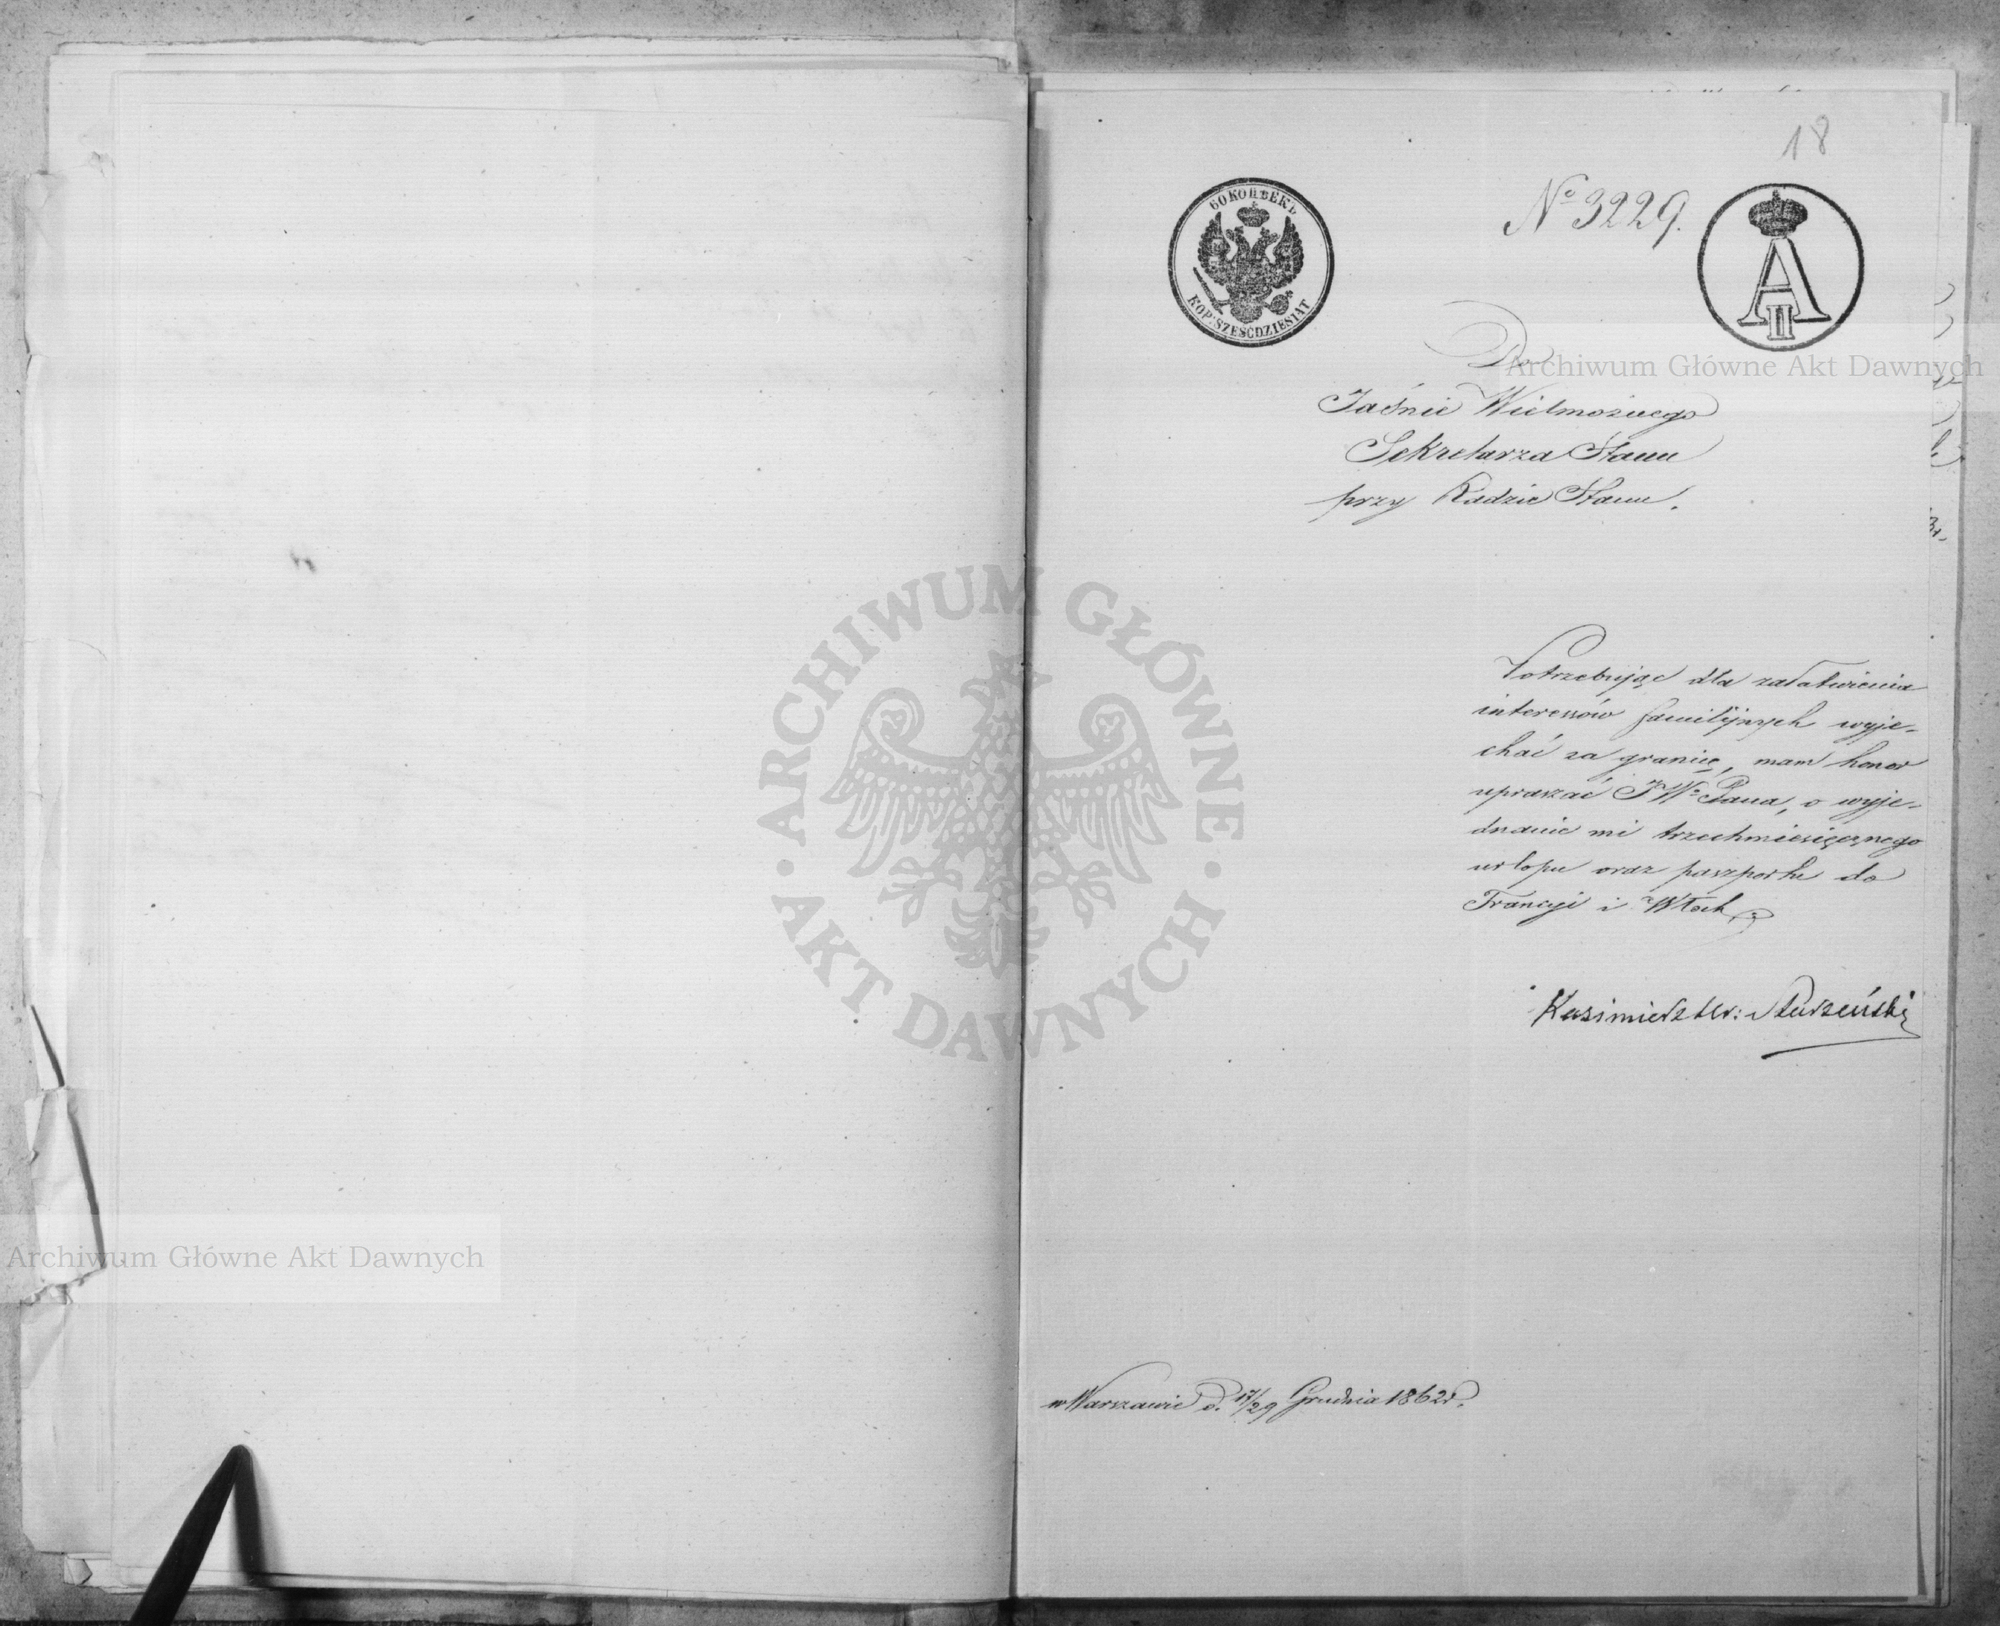 18
60 КОПѢЕКЪ
KOP: SZEŚĆDZIESIĄT
№ 3229.
A II
Do
Jaśnie Wielmożnego
Sekretarza Stanu
przy Radzie Stanu.
Potrzebując dla załatwienia
interessów familijnych wyje-
chać za granicę, mam honor
upraszać JWº Pana, o wyje-
dnanie mi trzechmiesięcznego
urlopu oraz paszportu do
Francyi i Włoch.
Kazimierz Hr: Starzeński
w Warszawie d. 17/29 Grudnia 1862 r.
Archiwum Główne Akt Dawnych
ARCHIWUM GŁÓWNE · AKT DAWNYCH ·
Archiwum Główne Akt Dawnych